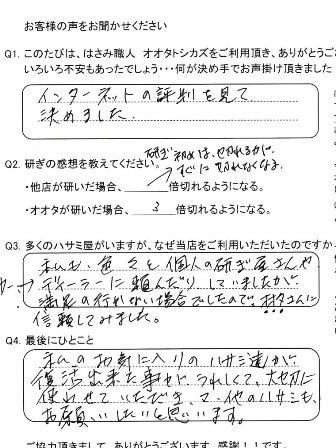 お客様の声をお聞かせください
Q1. このたびは、はさみ職人 オオタトシカズをご利用頂き、ありがとうご
いろいろ不安もあったでしょう・・・何が決め手でお声掛け頂きました
インターネットの評判を見て
決めました。
Q2. 研ぎの感想を教えてください。
研ぎ初めは、切れるが
すぐに切れなくなる。
・他店が研いだ場合、 倍切れるようになる。
・オオタが研いだ場合、 3 倍切れるようになる。
Q3. 多くのハサミ屋がいますが、なぜ当店をご利用いただいたのですか
私も、色々と個人の研ぎ屋さんや
ディーラーに頼んだりしていましたが
満足の行かない場合でしたので、さんに
信頼してみました。
Q4. 最後にひとこと
私のお気に入りのハサミ達が
復活出来た事がうれしくて、大切に
使わせていただき、又、他のハサミも、
お願いしたいと思います。
ご協力頂きまして、ありがとうございます。感謝!!です。